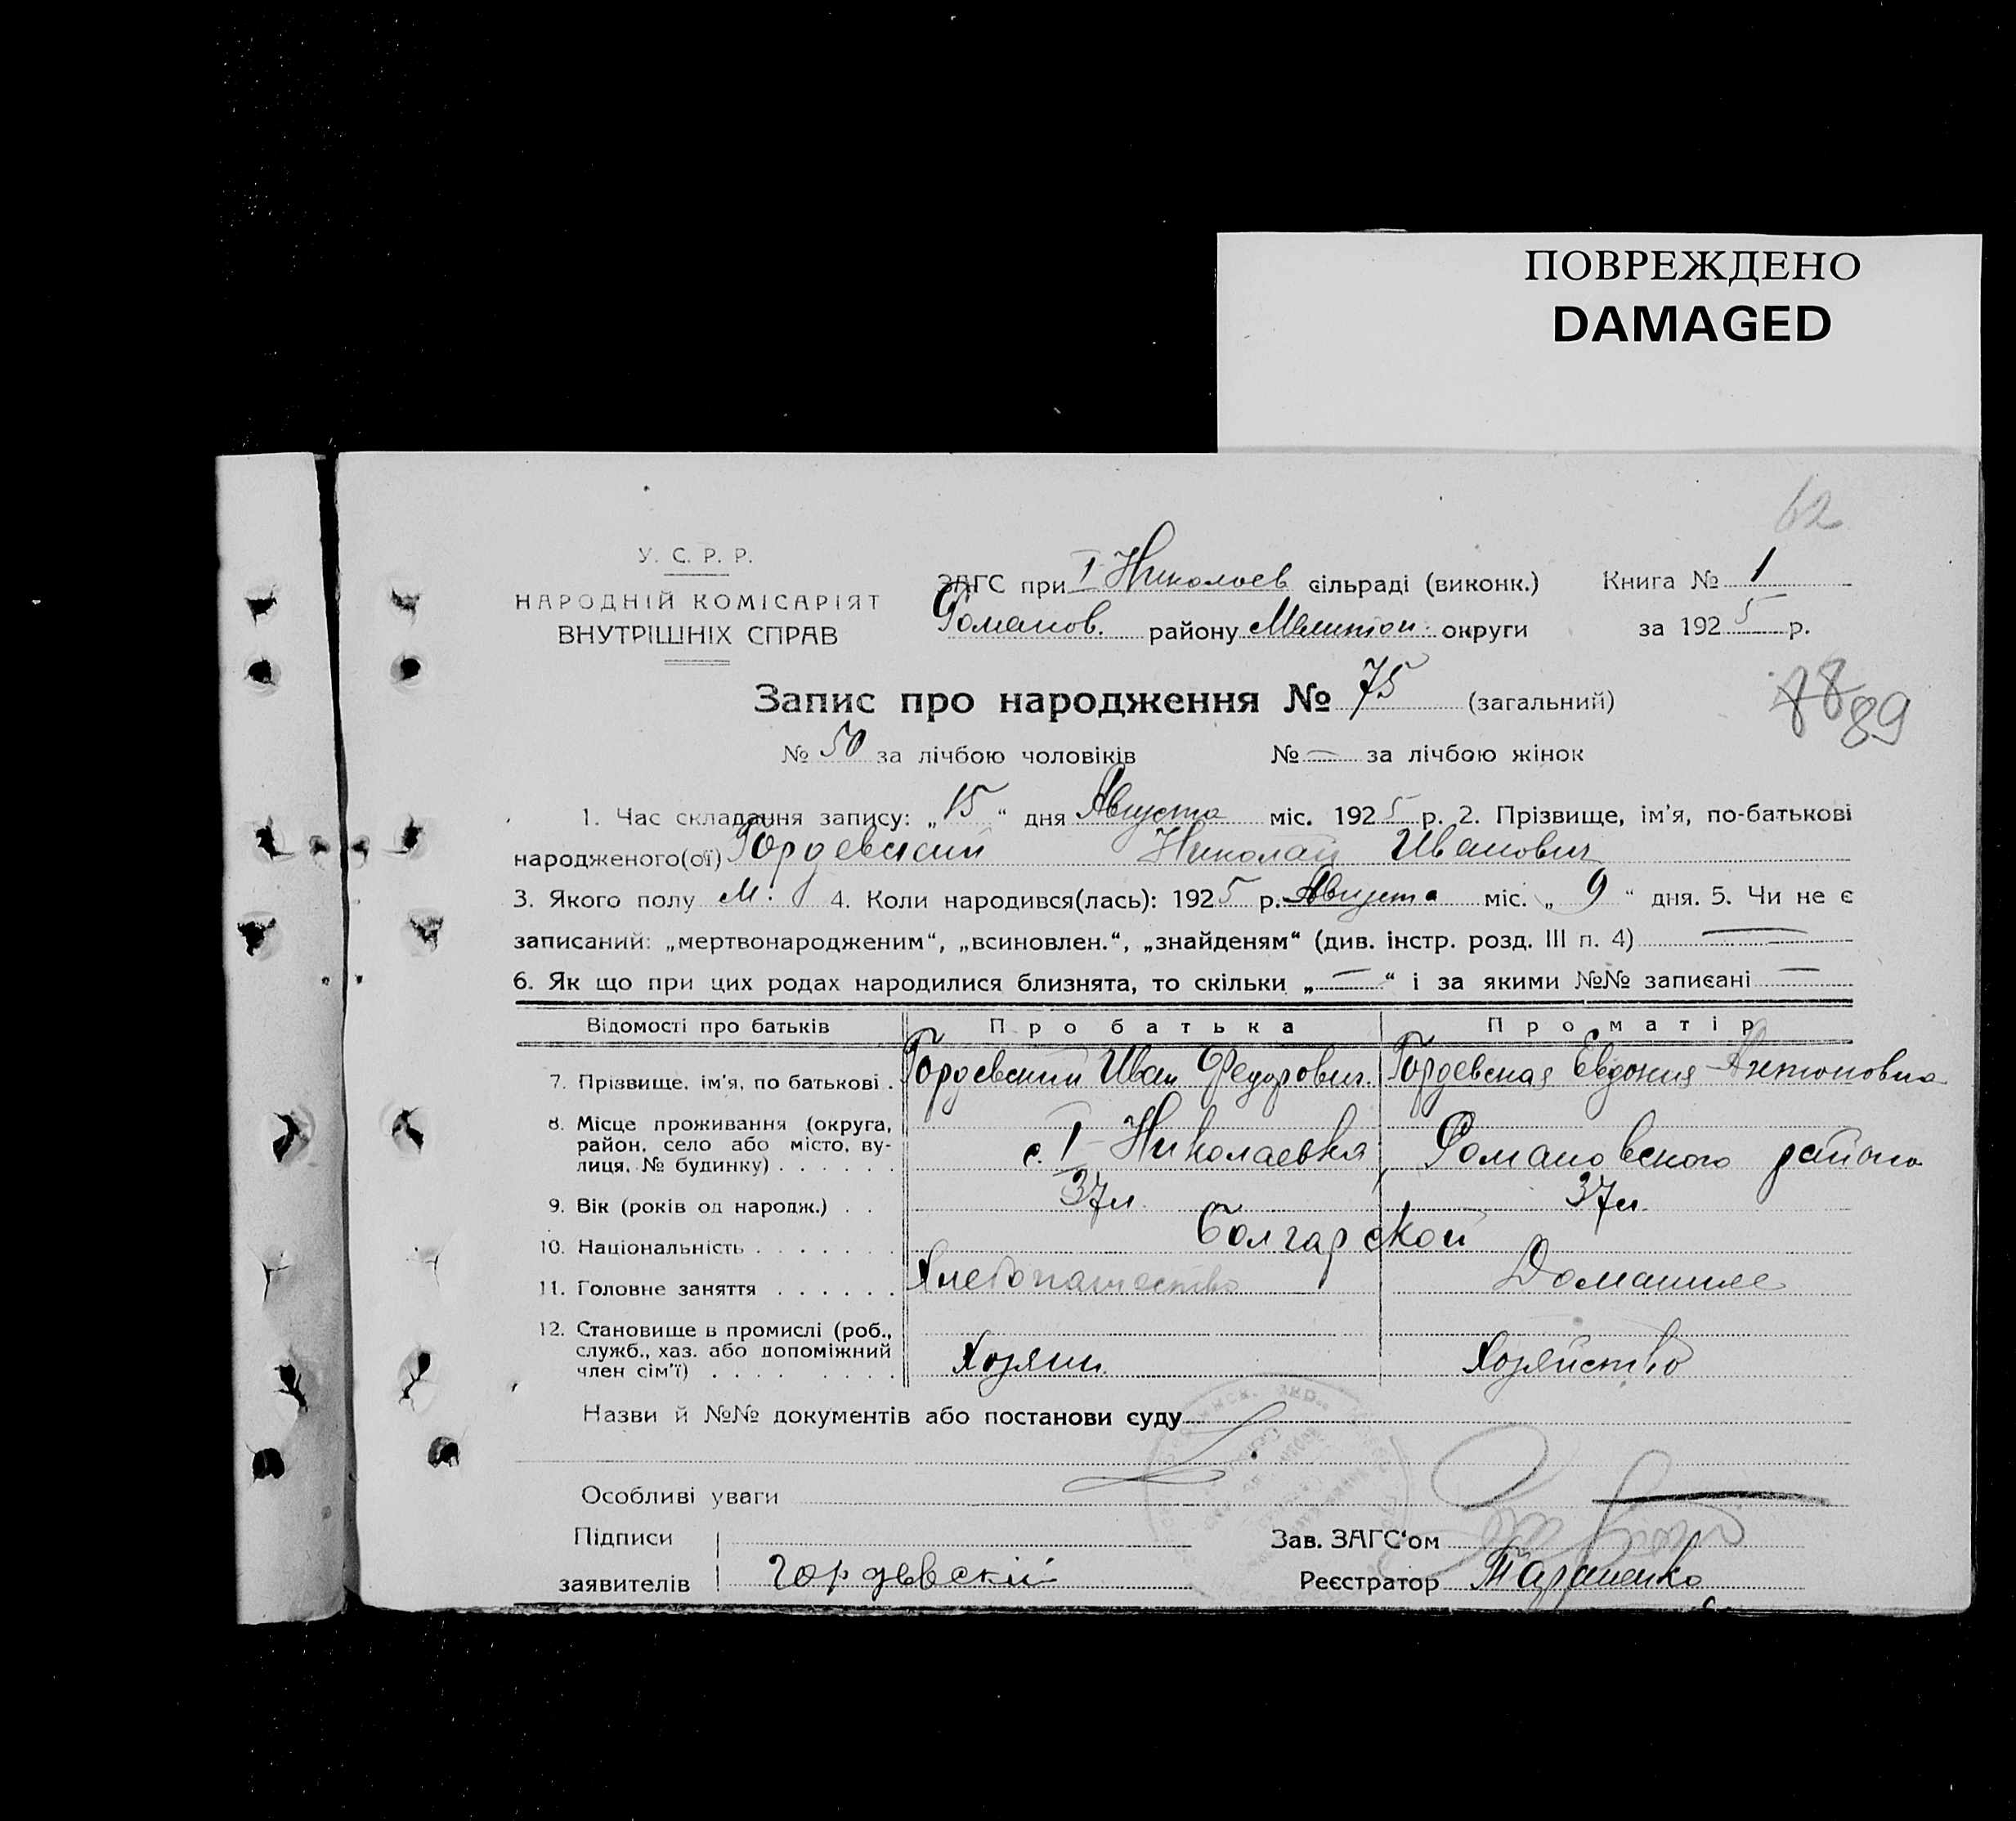 ПОВРЕЖДЕНО
DAMAGED
62
У. С. Р. Р.
НАРОДНІЙ КОМІСАРІЯТ
ВНУТРІШНІХ СПРАВ
ЗАГС при I Николаев сільраді (виконк.) Книга № 1
Романов. району Мелитоп. округи за 1925 р.
Запис про народження № 75 (загальний)
88 89
№ 50 за лічбою чоловіків № — за лічбою жінок
1. Час складання запису: „15“ дня Августа міс. 1925 р. 2. Прізвище, ім'я, по-батькові
народженого(ої) Гордевский Николай Иванович
3. Якого полу М. 4. Коли народився(лась): 1925 р. Августа міс. „9“ дня. 5. Чи не є
записаний: „мертвонародженим“, „всиновлен.“, „знайденям“ (див. інстр. розд. III п. 4) —
6. Як що при цих родах народилися близнята, то скільки „—“ і за якими №№ записані —
Відомості про батьків Про батька Про матір
7. Прізвище, ім'я, по батькові . Гордевский Иван Федорович. Гордевская Евдокия Антоновна
8. Місце проживання (округа,
район, село або місто, ву-
лиця, № будинку) . . . . . . с. I Николаевка, Романовского района
9. Вік (років од народж.) . . 37 л. 37 л.
10. Національність . . . . . . . Болгарской
11. Головне заняття . . . . . . Хлебопашество Домашнее
12. Становище в промислі (роб.,
служб., хаз. або допоміжний
член сім'ї) . . . . . . . . Хозяин. Хозяйство
Назви й №№ документів або постанови суду
Особливі уваги —
Підписи
заявителів Гордевскій
Зав. ЗАГС'ом
Реєстратор Тараненко